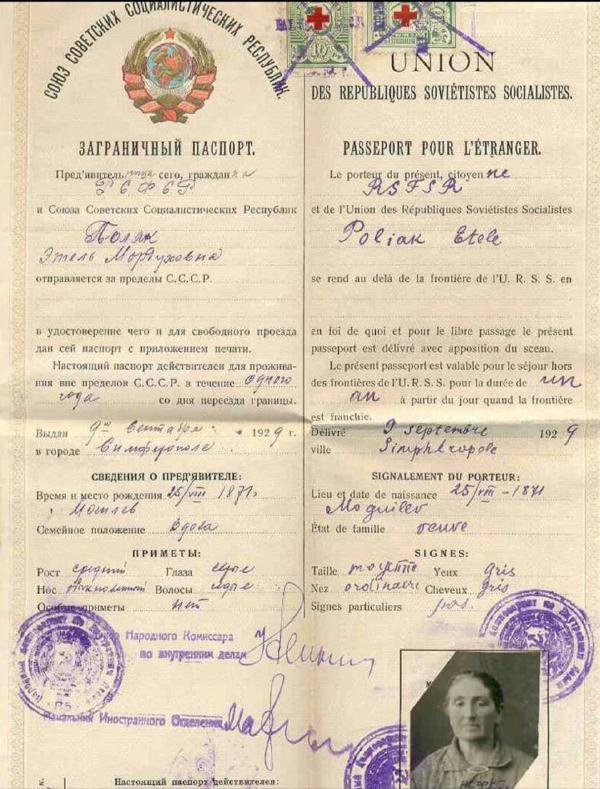 СОЮЗ СОВЕТСКИХ СОЦИАЛИСТИЧЕСКИХ РЕСПУБЛИК.
ЗАГРАНИЧНЫЙ ПАСПОРТ.
Пред'явитель ница сего, граждан ка
РСФСР
и Союза Советских Социалистических Республик
Поляк
Этель Мордуховна
отправляется за пределы С.С.С.Р.
в удостоверение чего и для свободного проезда
дан сей паспорт с приложением печати.
Настоящий паспорт действителен для прожива-
ния вне пределов С.С.С.Р. в течение одного
года со дня переезда границы.
Выдан 9го Сентября 1929 г.
в городе Симферополе
СВЕДЕНИЯ О ПРЕД'ЯВИТЕЛЕ:
Время и место рождения 25/VIII 1871
Могилев
Семейное положение Вдова
ПРИМЕТЫ:
Рост средний Глаза серые
Нос Волосы седые
Особые приметы нет
Народного Комиссара
по внутренним делам
Начальник Иностранного Отделения
Настоящий паспорт действителен:
10 10
UNION
DES RÉPUBLIQUES SOVIÉTISTES SOCIALISTES.
PASSEPORT POUR L'ÉTRANGER.
Le porteur du présent, citoyen ne
RSFSR
et de l'Union des Républiques Soviétistes Socialistes
Poliak Etele
se rend au delà de la frontière de l'U. R. S. S. en
en foi de quoi et pour le libre passage le présent
passeport est délivré avec apposition du sceau.
Le présent passeport est valable pour le séjour hors
des frontières de l'U. R. S. S. pour la durée de un
an à partir du jour quand la frontière
est franchie.
Délivré 9 septembre 1929
ville Simphéropole
SIGNALEMENT DU PORTEUR:
Lieu et date de naissance 25/VIII - 1871
Moguilev
État de famille veuve
SIGNES:
Taille moyenne Yeux gris
Nez ordinaire Cheveux gris
Signes particuliers pas.